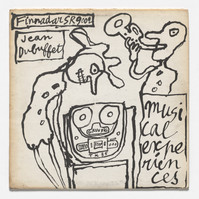 Finnadar SR 9002
Jean
Dubuffet
musi
cal
exper
ien
ces